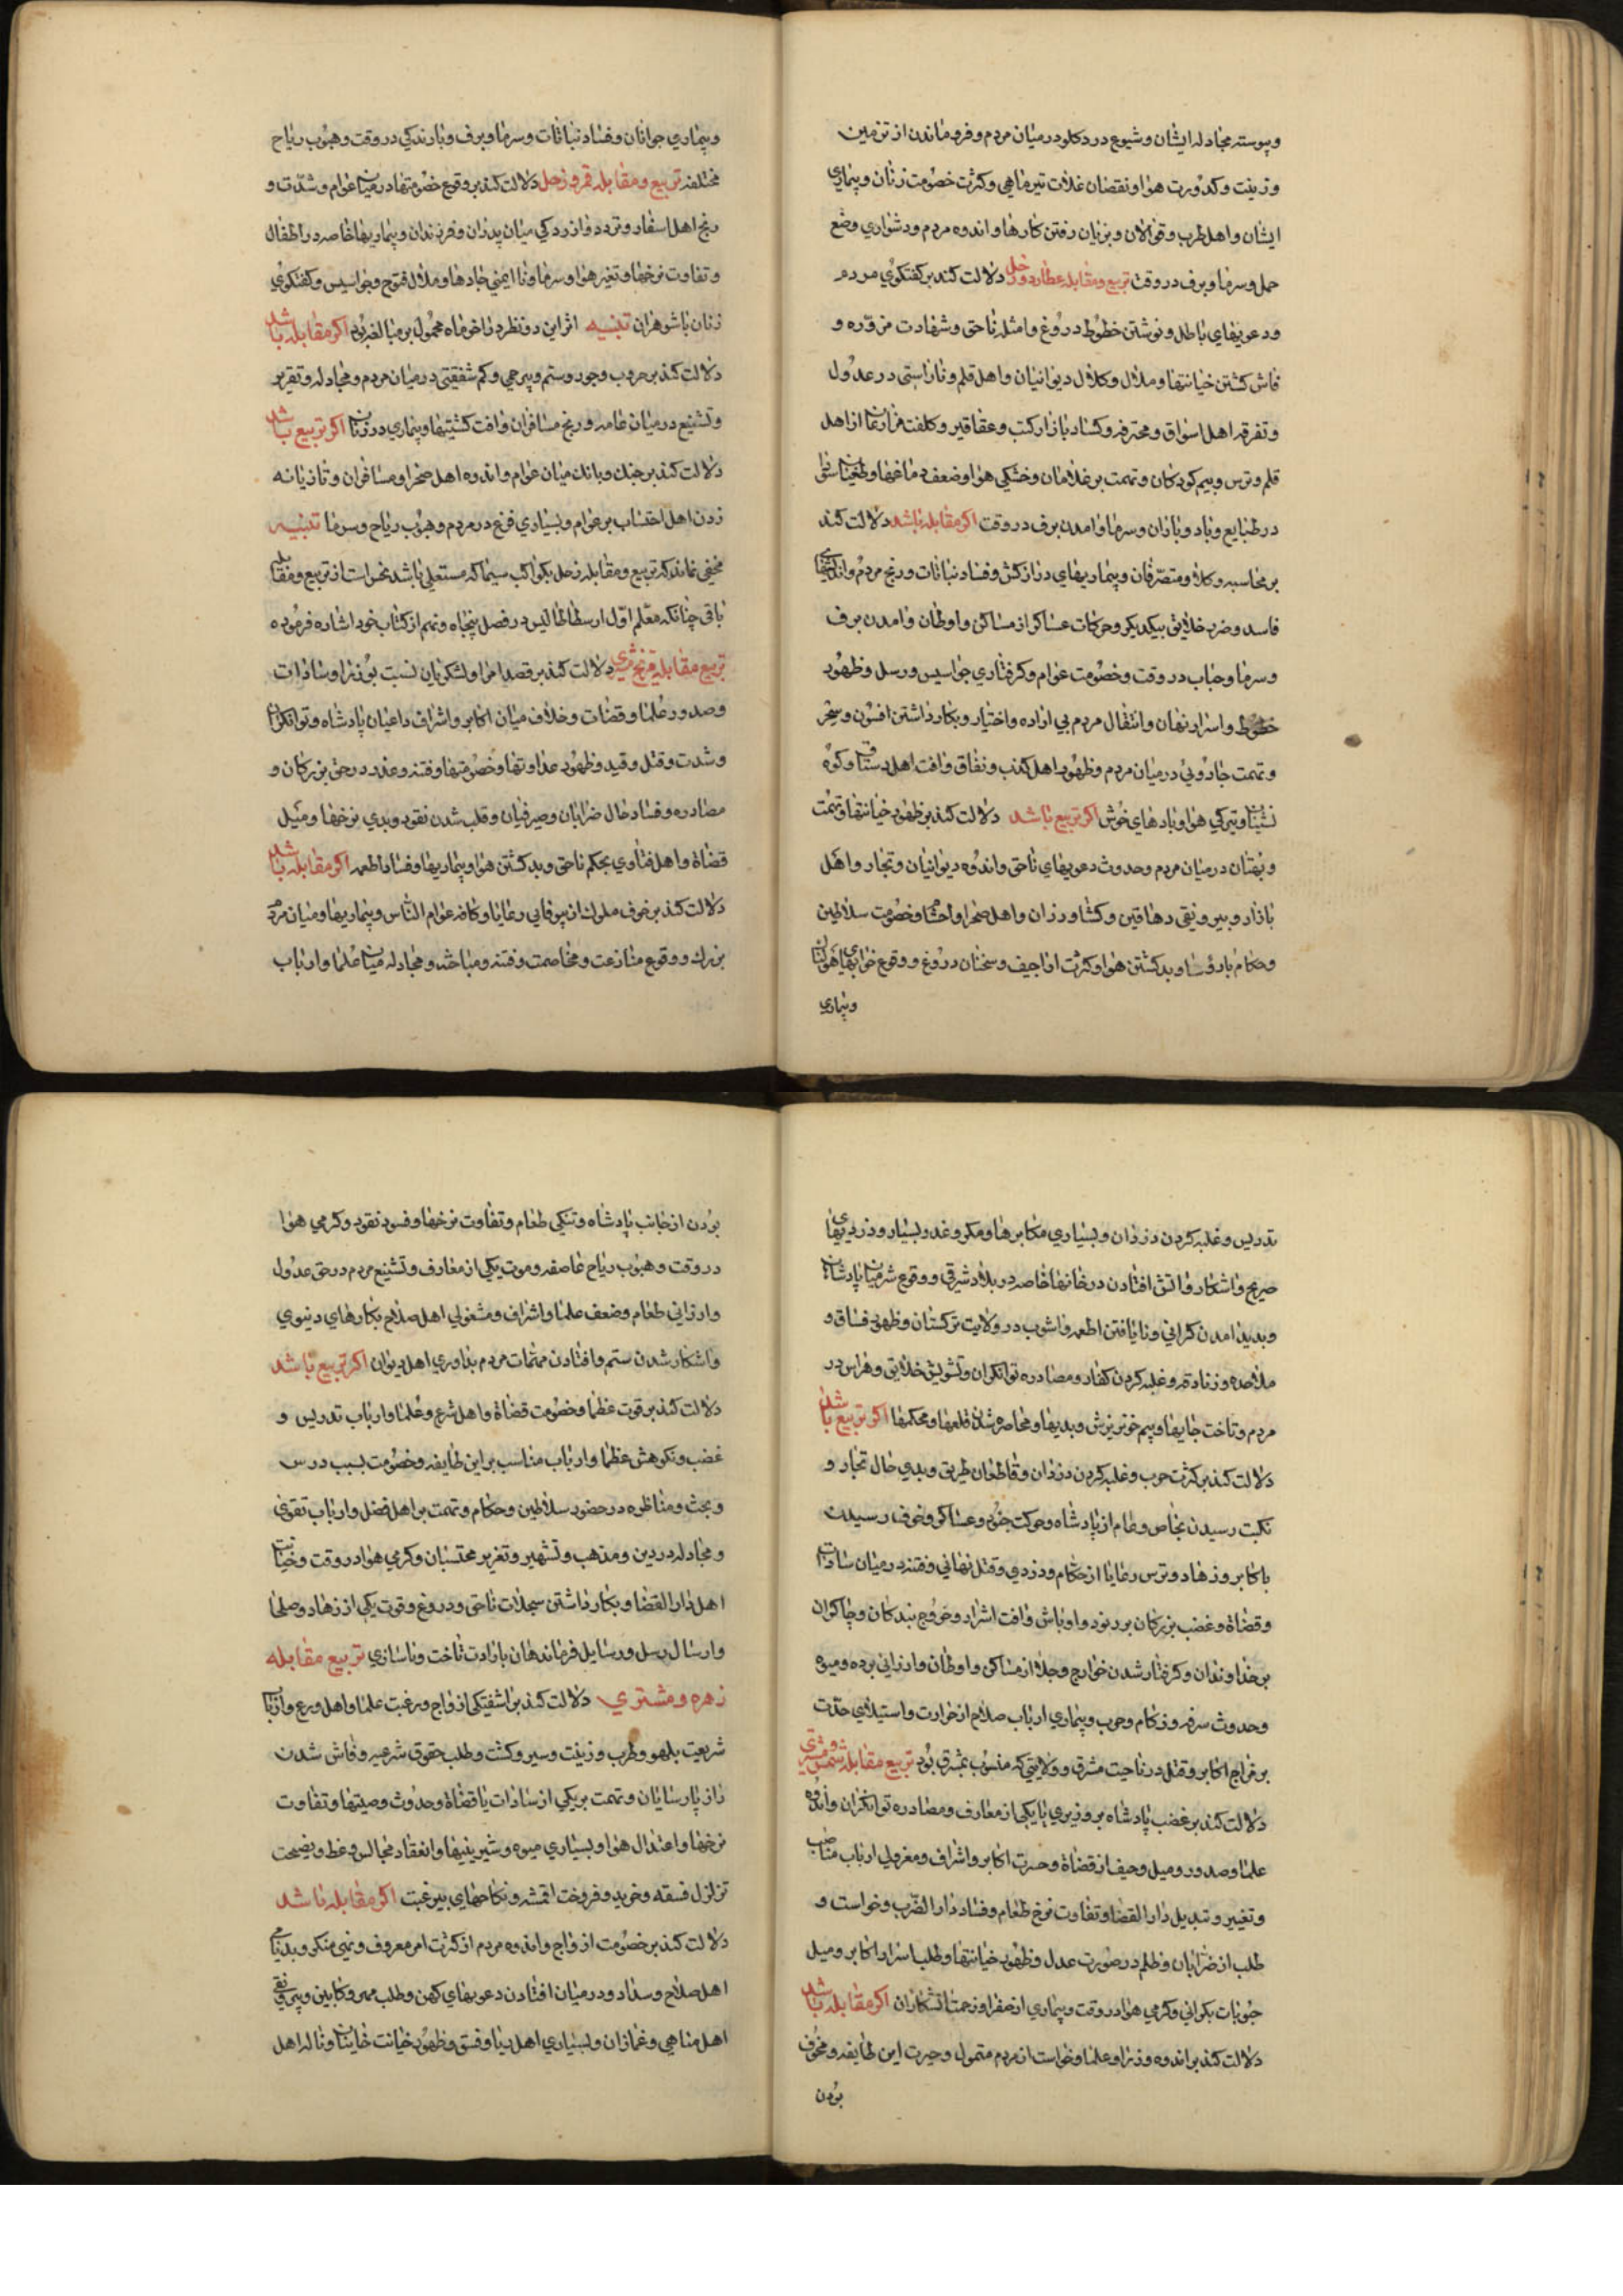 وپیوسته مجادله ایشان وشیوع درد کلو درمیان مردم وفروماندن از تزمین
وزینت وکدورت هوا ونقصان غلات تیرماهی وکثرت خصومت زنان وبیماری
ایشان واهل طرب وقوالان وبزیان رفتن کارها واندوه مردم ودشواری وضع
حمل وسرما وبرف دروقت تربیع ومقابله عطارد وزحل دلالت کند بر کفتکوی مردم
ودعویهای باطل ونوشتن خطوط دروغ وامثله ناحق وشهادت مزوره و
فاش کشتن خیانتها وملال وکلال دیوانیان واهل قلم وناراستی درعدول
وتفرقه اهل اسواق ومحترفه وکساد بازار کتب وعقاقیر وکلفت از اهل
قلم وترس وبیم کودکان وتهمت برغلامان وخشکی هوا وضعف دماغها
درطبایع وباد وباران وسرما وامدن برف دروقت اکر مقابله باشد دلالت کند
برمحاسبه وکلا ومتصرفان وبیماریهای درازکش وفساد نباتات ورنج مردم واندیشهای
فاسد وضرب خلایق بیکدیکر وحرکات عساکر از مساکن واوطان وامدن برف
وسرما وحباب دروقت وخصومت عوام وکرفتاری جواسیس ورسل وظهور
خطوط واسرار نهان وانتقال مردم بی اراده واختیار وبکار داشتن افسون وسحر
وتهمت جادویی درمیان مردم وظهور اهل کذب ونفاق وافت اهل وکوه
نشینان وتیرکی هوا وبادهای خوش اکر تربیع باشد دلالت کند بر ظهور خیانتها وتهمت
وبهتان درمیان مردم وحدوث دعویهای ناحق واندوه دیوانیان وتجار واهل
بازار وبیرونقی دهاقین وکشاورزان واهل صحرا واحشام وخصومت سلاطین
وحکام با رؤسا وبد کشتن هوا وکثرت اراجیف وسخنان دروغ ووقوع خوابهای هولناک
وبیماری
وبیماری جوانان وفساد نباتات وسرما وبرف وبارندکی دروقت وهبوب ریاح
مختلفه تربیع ومقابله قمر وزحل دلالت کند بر وقوع خصومتها درمیان عوام وشدت و
رنج اهل اسفار وتردد وازردکی میان پدران وفرزندان وبیماریها خاصه در اطفال
وتفاوت نرخها وتغیر هوا وسرما ونا ایمنی جادها وملال فتوح وجواسیس وکفتکوی
زنان با شوهران تنبیه اثر این دو نظر در اخر ماه محمول بر مبالغه بود اکر مقابله باشد
دلالت کند بر حروب وجور وستم وبیرحمی وکم شفقتی درمیان مردم ومجادله وتقریر
وتشنیع درمیان عامه ورنج مسافران وافت کشتیها وبیماری در زنان اکر تربیع باشد
دلالت کند بر جنک وبانک میان عوام واندوه اهل صحرا ومسافران وتازیانه
زدن اهل احتساب بر عوام وبسیاری فزع در مردم وهبوب ریاح وسرما تنبیه
مخفی نماند که تربیع ومقابله زحل بکواکب سیما که مستعلی باشد نحس است از تربیع ومقابله
باقی چنانکه معلم اول ارسطاطالیس در فصل پنجاه ونهم از کتاب خود اشاره فرموده
تربیع مقابله مریخ مشتری دلالت کند بر قصد امرا ولشکریان نسبت بوزرا وسادات
وصدور علما وقضات وخلاف میان اکابر واشراف داعیان پادشاه وتوانکران
وشدت وقتل وقید وظهور عداوتها وخصومتها وفتنه وغدر درحق بزرکان و
مصادره وفساد حال ضرابان وصیرفیان وقلب شدن نقود وبدی نرخها ومیل
قضاة واهل فتاوی بحکم ناحق وبد کشتن هوا وبیماریها وفساد اطعمه اکر مقابله باشد
دلالت کند بر خوف ملوک از بیوفایی رعایا وکافه عوام الناس وبیماریها ومیان مردم
بزرک ووقوع منازعت ومخاصمت وفتنه ومباحثه ومجادله میان علما وارباب
تدریس وغلبه کردن دزدان وبسیاری مکابرها ومکر وغدر بسیار ودزدیهای
صریح واشکار واتش افتادن درخانها خاصه در بلاد شرقی ووقوع شر میان پادشاهان
وپدید امدن کرانی ونایافتن اطعمه واشوب در ولایت ترکستان وظهور فساق و
ملاحده وزنادقه وغلبه کردن کفار ومصادره توانکران وتشویش خلایق وهراس در
مردم وتاخت جایها وبیم خونریزش وبدیها ومحاصره شدن قلعها ومحکمها اکر تربیع باشد
دلالت کند بر کثرت حرب وغلبه کردن دزدان وقاطعان طریق وبدی حال تجار و
نکبت رسیدن بخاص وعام از پادشاه وحرکت جنود وعساکر وخوف رسیدن
باکابر وزهاد وترس رعایا از حکام ودزدی وقتل نهانی وفتنه درمیان سادات
وقضاة وغضب بزرکان بر رنود واوباش وافت اشرار وخروج بندکان وچاکران
بر خداوندان وکرفتار شدن خوارج وجلا از مساکن واوطان وارزانی برده ومیوه
وحدوث سرفه وزکام وحرب وبیماری ارباب صلاح از حرارت واستیلای حدت
بر مزاج اکابر وقتل درناحیت مشرق وولایتی که منسوب بمشرق بود تربیع مقابله شمس ومشتری
دلالت کند بر غضب پادشاه بر وزیری یا یکی از معارف ومصادره توانکران واندوه
علما وصدور ومیل وحیف از قضاة وحسرت اکابر واشراف ومعزولی ارباب مناصب
وتغییر وتبدیل دار القضا وتفاوت نرخ طعام وفساد دار الضرب وخواست و
طلب از ضرابان وظلم در صورت عدل وظهور خیانتها وطلب اسرار اکابر ومیل
حبوبات بکرانی وکرمی هوا دروقت وبیماری از صفرا وزحمت اتشکاران اکر مقابله باشد
دلالت کند بر اندوه وزرا وعلما وخواست از مردم متمول وحیرت این طایفه ومخوف
بودن
بودن از جانب پادشاه وتنکی طعام وتفاوت نرخها وفسود نقود وکرمی هوا
دروقت وهبوب ریاح عاصفه وموت یکی از معارف وتشنیع مردم درحق عدول
وارزانی طعام وضعف علما واشراف ومشغولی اهل صلاح بکارهای دنیوی
واشکار شدن ستم وافتادن مهمات مردم بداوری اهل دیوان اکر تربیع باشد
دلالت کند بر قوت عظما وخصومت قضاة واهل شرع وعلما وارباب تدریس و
غضب ونکوهش عظما وارباب مناسب بر این طایفه وخصومت بسبب درس
وبحث ومناظره درحضور سلاطین وحکام وتهمت بر اهل فضل وارباب تقوی
ومجادله در دین ومذهب وتشهیر وتعزیر محتسبان وکرمی هوا دروقت وخیانت
اهل دار القضا وبکار داشتن سجلات ناحق ودروغ وقوت یکی از زهاد وصلحا
وارسال رسل ورسایل فرماندهان بارادت تاخت وناسازی تربیع مقابله
زهره ومشتری دلالت کند بر اشفتکی ازواج ورغبت علما واهل ورع وارباب
شریعت بلهو وطرب وزینت وسیر وکشت وطلب حقوق شرعیه وفاش شدن
راز پارسایان وتهمت بریکی از سادات یا قضاة وحدوث وصیتها وتفاوت
نرخها واعتدال هوا وبسیاری میوه وشیرینیها وانعقاد مجالس وعظ ونصیحت
تزلزل فسقه وخرید وفروخت اقمشه ونکاحهای بیرغبت اکر مقابله باشد
دلالت کند بر خصومت ازواج واندوه مردم از کثرت امر معروف ونهی منکر وبدنامی
اهل صلاح وسداد ودرمیان افتادن دعویهای کهن وطلب مهر وکابین وبیرونقی
اهل مناهی وغمازان وبسیاری اهل ریا وفسق وظهور خیانت خاینان وناله اهل